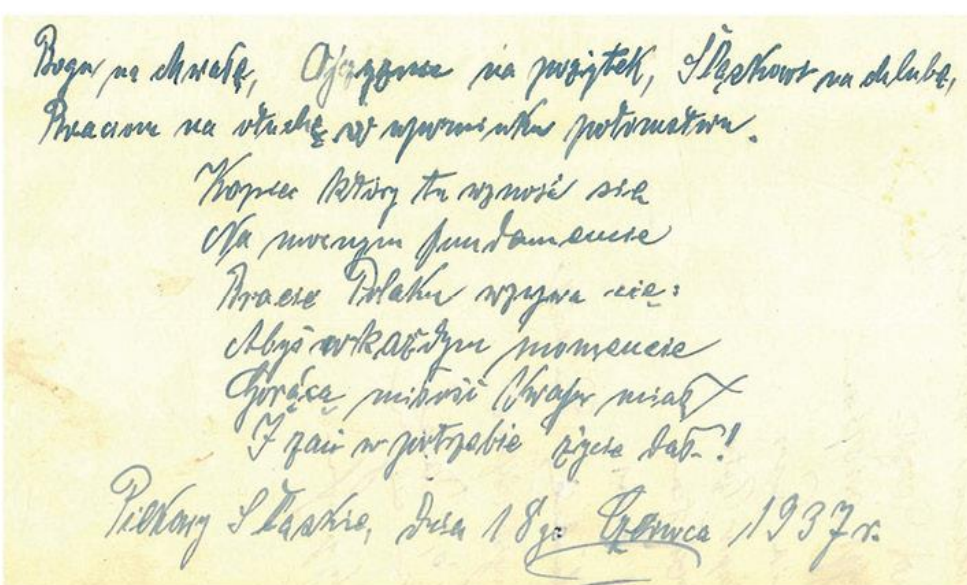 Bogu na chwałę, Ojczyznie na pożytek, Śląskowi na chlubę,
Braciom na otuchę, w upominku potomstwu.
Kopiec który tu wznosi się
Na mocnym fundamencie
Bracie Polaku wzywa cię:
Abyś w każdym momencie
Gorącą miłość Kraju miał
I zań w potrzebie życie dał.!
Piekary Śląskie, dnia 18go Czerwca 1937 r.